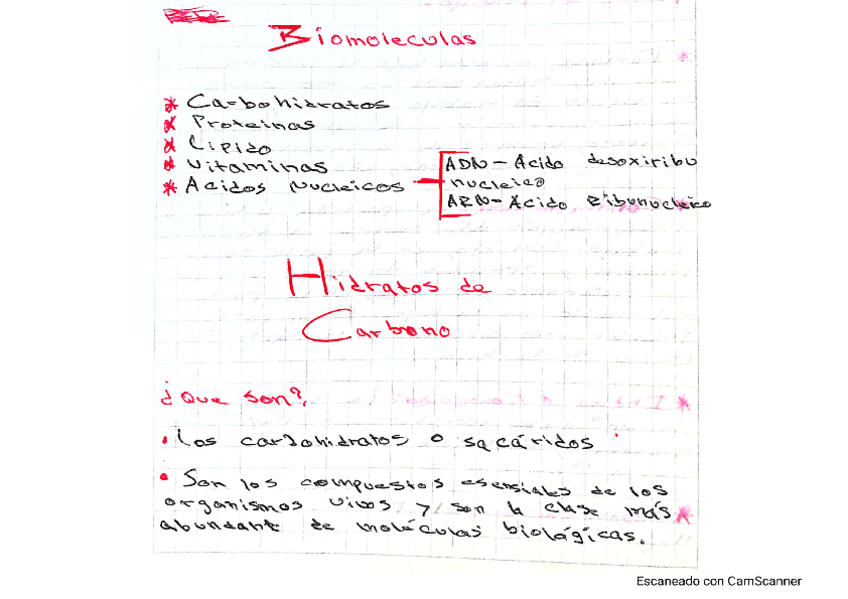 Biomoleculas
* Carbohidratos
* Proteinas
* Lipido
* Vitaminas
* Acidos Nucleicos
ADN - Ácido desoxiribu
nucleico
ARN - Ácido Ribunucleico
Hidratos de
Carbono
¿Que son?
• Los carbohidratos o sacáridos
• Son los compuestos esensiales de los
organismos vivos y son la clase más
abundante de moléculas biológicas.
Escaneado con CamScanner